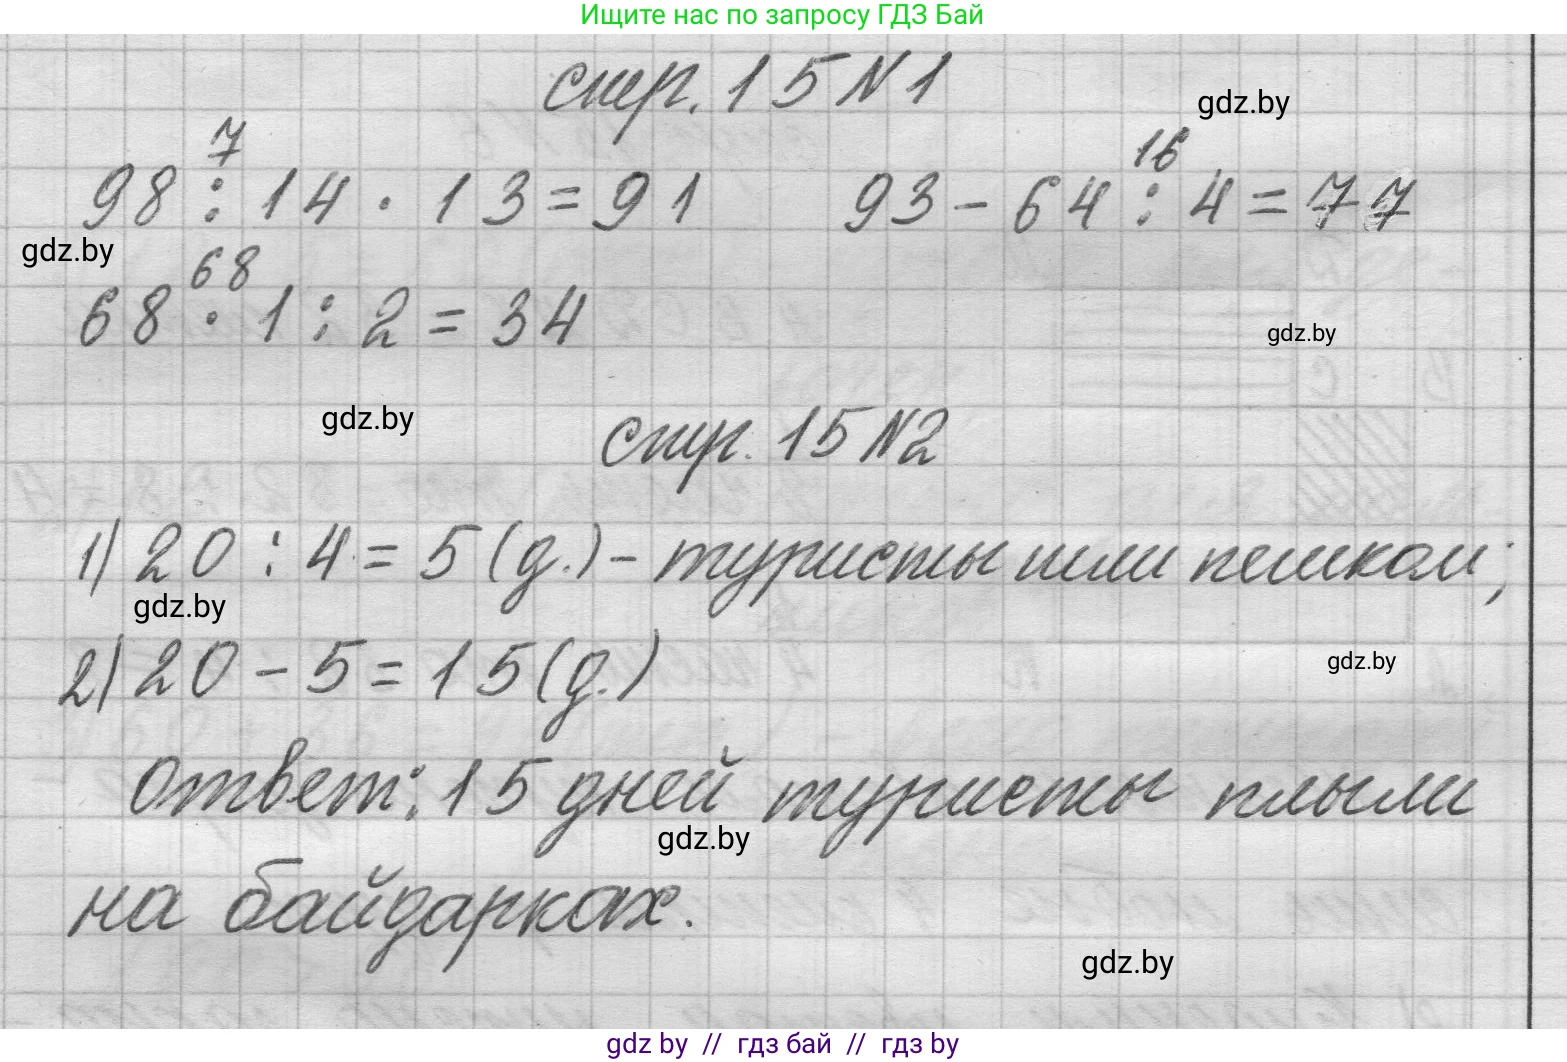 Ищите нас по запросу ГДЗ Бай
стр. 15 N 1
gdz.by
7
16
98 : 14 · 13 = 91
93 - 64 : 4 = 77
gdz.by
68
68 · 1 : 2 = 34
gdz.by
gdz.by
стр. 15 N2
1) 20 : 4 = 5 (д.) - туристы шли пешком;
gdz.by
2) 20 - 5 = 15 (д.)
gdz.by
Ответ: 15 дней туристы плыли
gdz.by
на байдарках.
gdz.by
gdz by // гдз бай // гдз by